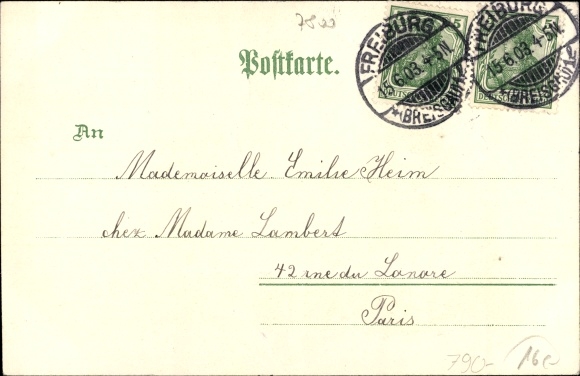 7822
FREIBURG
15.6.03.4-5N.
*(BREISGAU)1.
5
FREIBURG
15.6.03.4-5N.
*(BREISGAU)1.
5
Postkarte.
An
Mademoiselle Emilie Heim
chez Madame Lambert
42 rue du Lanare
Paris
790-
16c